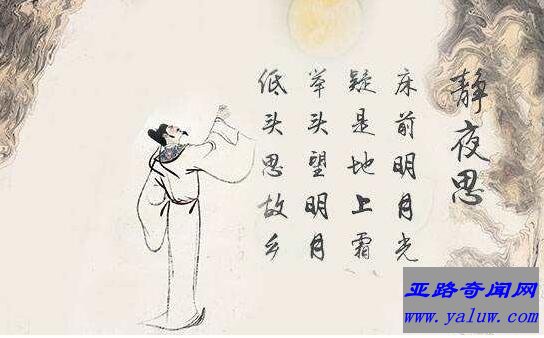 静夜思
床前明月光
疑是地上霜
举头望明月
低头思故乡
亚路奇闻网
www.yaluw.com